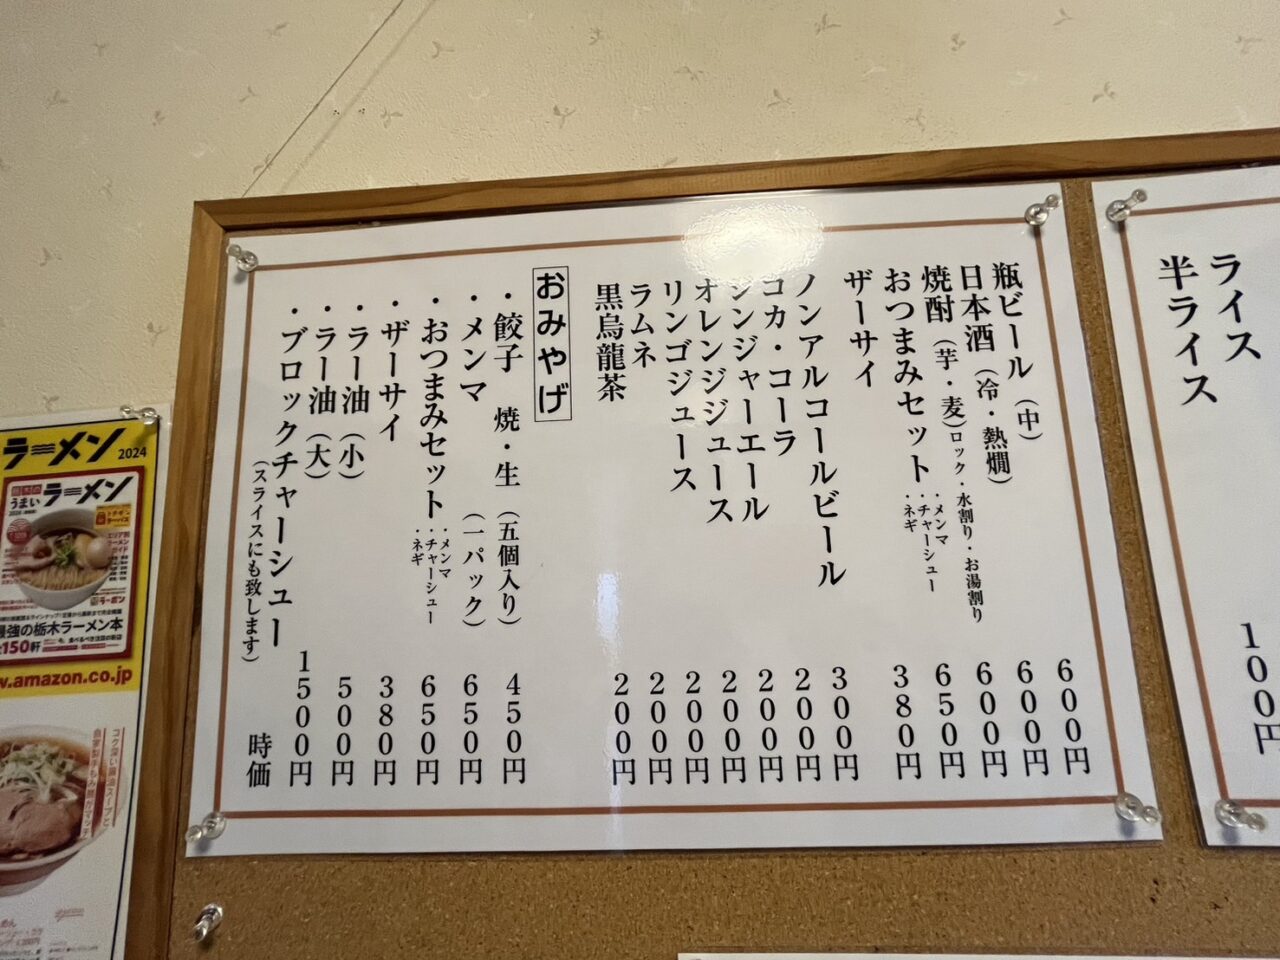 ライス
半ライス
100円
瓶ビール（中） 600円
日本酒（冷・熱燗） 600円
焼酎（芋・麦）ロック・水割り・お湯割り 600円
おつまみセット ・メンマ ・チャーシュー ・ネギ 650円
ザーサイ 380円
ノンアルコールビール 300円
コカ・コーラ 200円
ジンジャーエール 200円
オレンジジュース 200円
リンゴジュース 200円
ラムネ 200円
黒烏龍茶 200円
おみやげ
・餃子 焼・生（五個入り） 450円
・メンマ （一パック） 650円
・おつまみセット ・メンマ ・チャーシュー ・ネギ 650円
・ザーサイ 380円
・ラー油（小） 500円
・ラー油（大） 1500円
・ブロックチャーシュー 時価
（スライスにも致します）
ラーメン 2024
うまい ラーメン
最強の栃木ラーメン本
150軒
w.amazon.co.jp
コク深い醤油スープと
自家製手もみ麺がマッチ